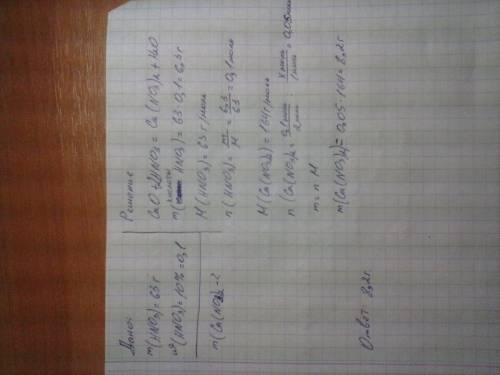 Дано:
m(HNO3)=63 г
ω(HNO3)=10%=0,1
m(Ca(NO3)2-?
Решение
CaO+2HNO3=Ca(NO3)2+H2O
m(кислоты HNO3)=63·0,1=6,3 г
M(HNO3)=63 г/моль
n(HNO3)=m/M=6,3/63=0,1 моль
M(Ca(NO3)2)=164 г/моль
n(Ca(NO3)2=0,1 моль/2 моль x моль/1 моль=0,05 моль
m=n·M
m(Ca(NO3)2)=0,05·164=8,2 г
Ответ: 8,2 г